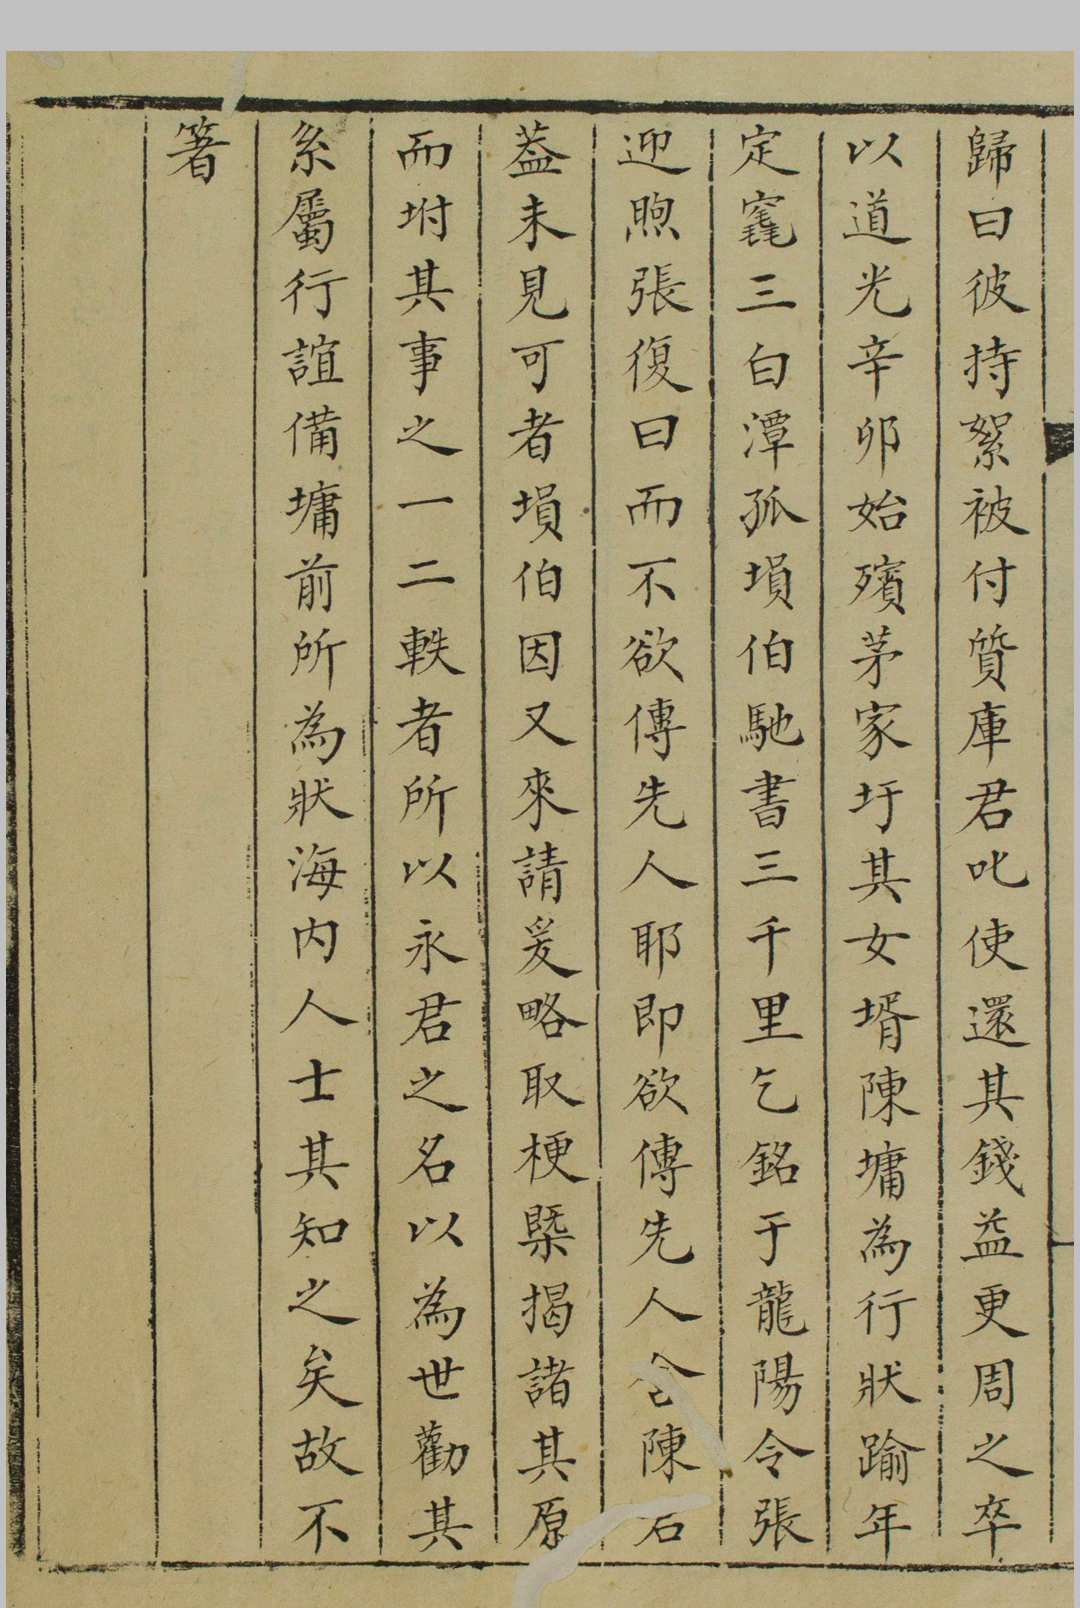 歸曰彼持絮被付質庫君叱使還其錢益更周之卒
以道光辛卯始殯茅家圩其女壻陳墉為行狀踰年
定竁三白潭孤塤伯馳書三千里乞銘于龍陽令張
迎煦張復曰而不欲傳先人耶即欲傳先人舍陳石
葢未見可者塤伯因又來請爰略取梗槩揭諸其原
而坿其事之一二軼者所以永君之名以為世勸其
系屬行誼備墉前所為狀海内人士其知之矣故不
箸